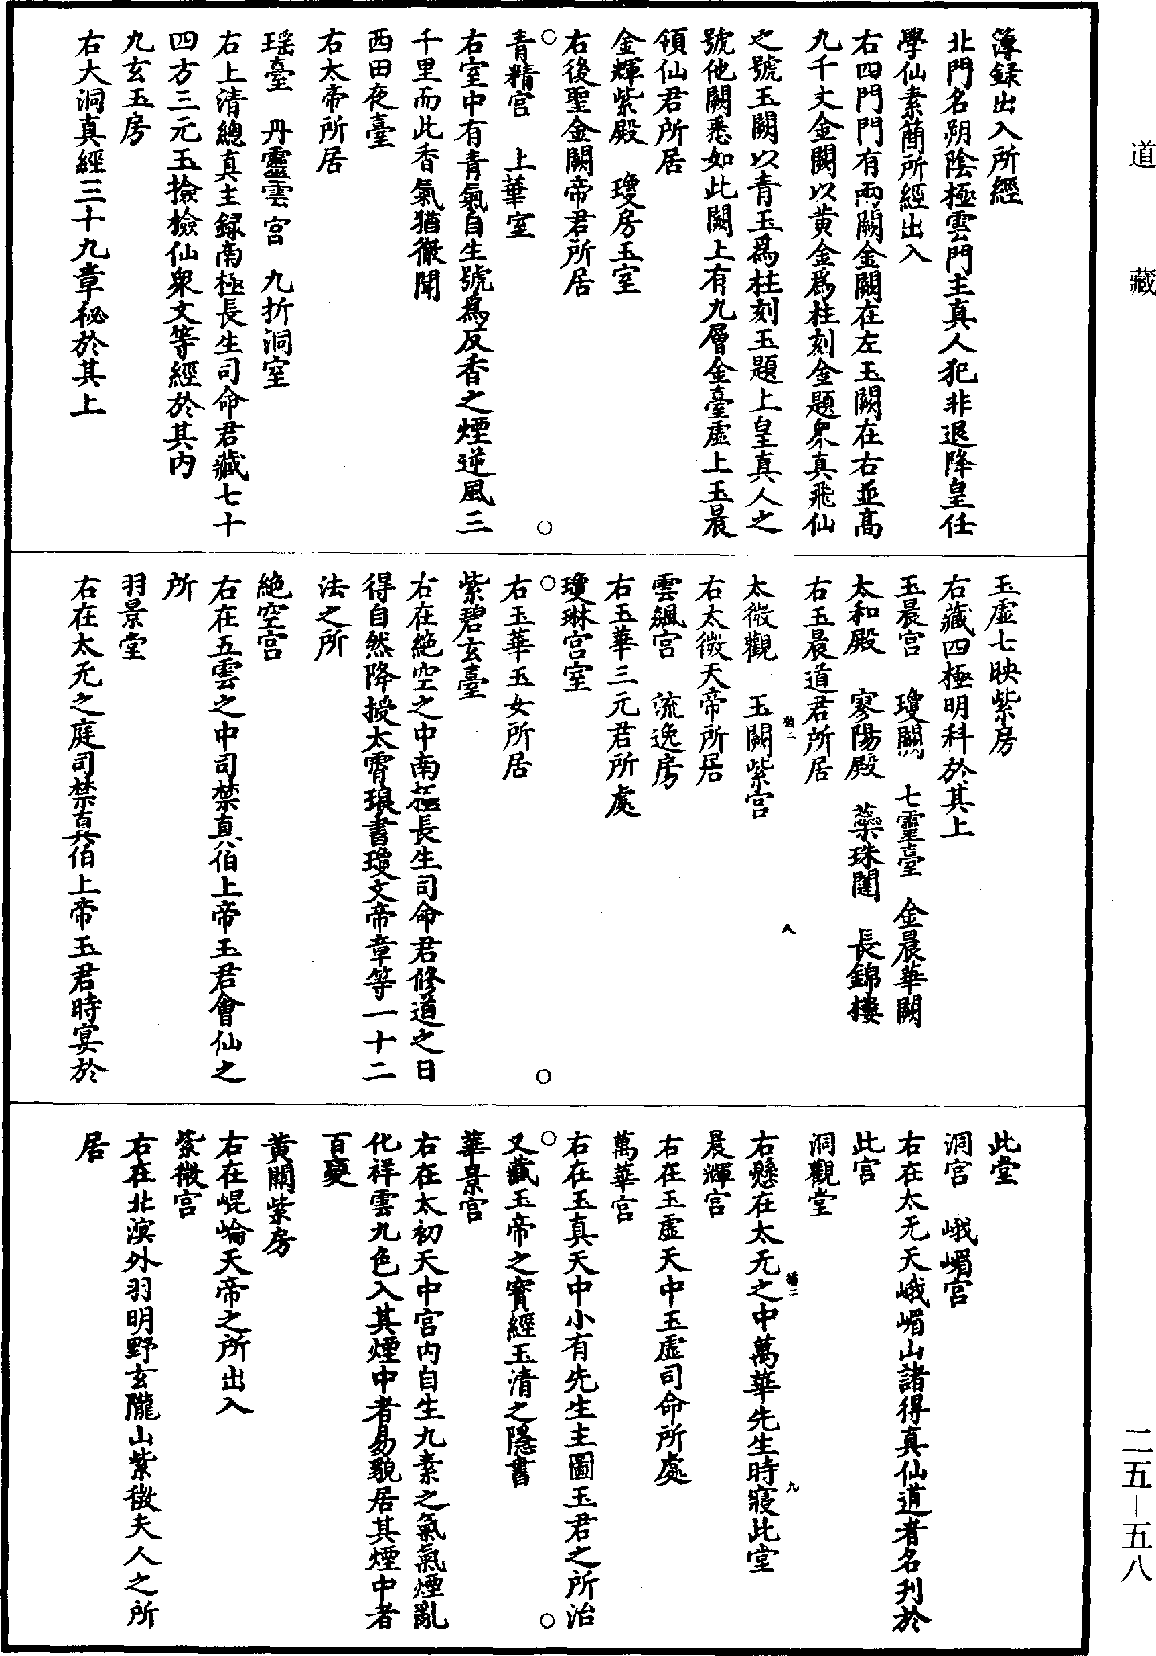 道藏
二五—五八
簿録出入所經
北門名朔陰極雲門主真人犯非退降皇任
學仙素簡所經出入
右四門門有兩闕金闕在左玉闕在右並高
九千丈金闕以黄金爲柱刻金題衆真飛仙
之號玉闕以青玉爲柱刻玉題上皇真人之
號他闕悉如此闕上有九層金臺虚上玉晨
領仙君所居
金輝紫殿　瓊房玉室
右後聖金闕帝君所居
青精宫　上華室
右室中有青氣自生號爲反香之煙逆風三
千里而此香氣猶徹聞
西田夜臺
右太帝所居
瑶臺　丹靈雲宫　九折洞室
右上清總真主録南極長生司命君藏七十
四方三元玉檢檢仙衆文等經於其内
九玄玉房
右大洞真經三十九章秘於其上
玉虚七映紫房
右藏四極明科於其上
玉晨宫　瓊闕　七靈臺　金晨華闕
太和殿　寥陽殿　蘂珠闥　長錦樓
右玉晨道君所居
太微觀　玉闕紫宫
右太微天帝所居
雲飆宫　流逸房
右玉華三元君所處
瓊琳宫室
右玉華玉女所居
紫碧玄臺
右在絶空之中南極長生司命君修道之日
得自然降授太霄琅書瓊文帝章等一十二
法之所
絶空宫
右在五雲之中司禁真伯上帝玉君會仙之
所
羽景堂
右在太无之庭司禁真伯上帝玉君時宴於
此堂
洞宫　峨嵋宫
右在太无天峨嵋山諸得真仙道者名刋於
此宫
洞觀堂
右懸在太无之中萬華先生時寢此堂
晨輝宫
右在玉虚天中玉虚司命所處
萬華宫
右在玉真天中小有先生主圖玉君之所治
又藏玉帝之寳經玉清之隱書
華景宫
右在太初天中宫内自生九素之氣氣煙亂
化祥雲九色入其煙中者易貌居其煙中者
百變
黄闕紫房
右在崐崘天帝之所出入
紫微宫
右在北溟外羽明野玄隴山紫微夫人之所
居